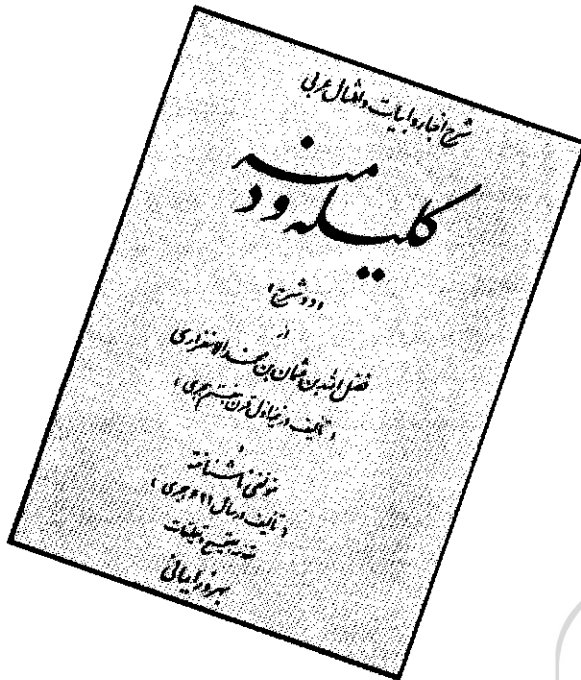 شرح اخبار و ابیات و امثال عربی
کلیله و دمنه
(دو شرح)
از
فضل الله بن عثمان بن محمد الاسفزاری
(تألیف در نیمه اول قرن هفتم هجری)
و
مؤلفی ناشناخته
(تألیف در سال ۶۱۱ هجری)
مقدمه تصحیح و تعلیقات
بهروز ایمانی